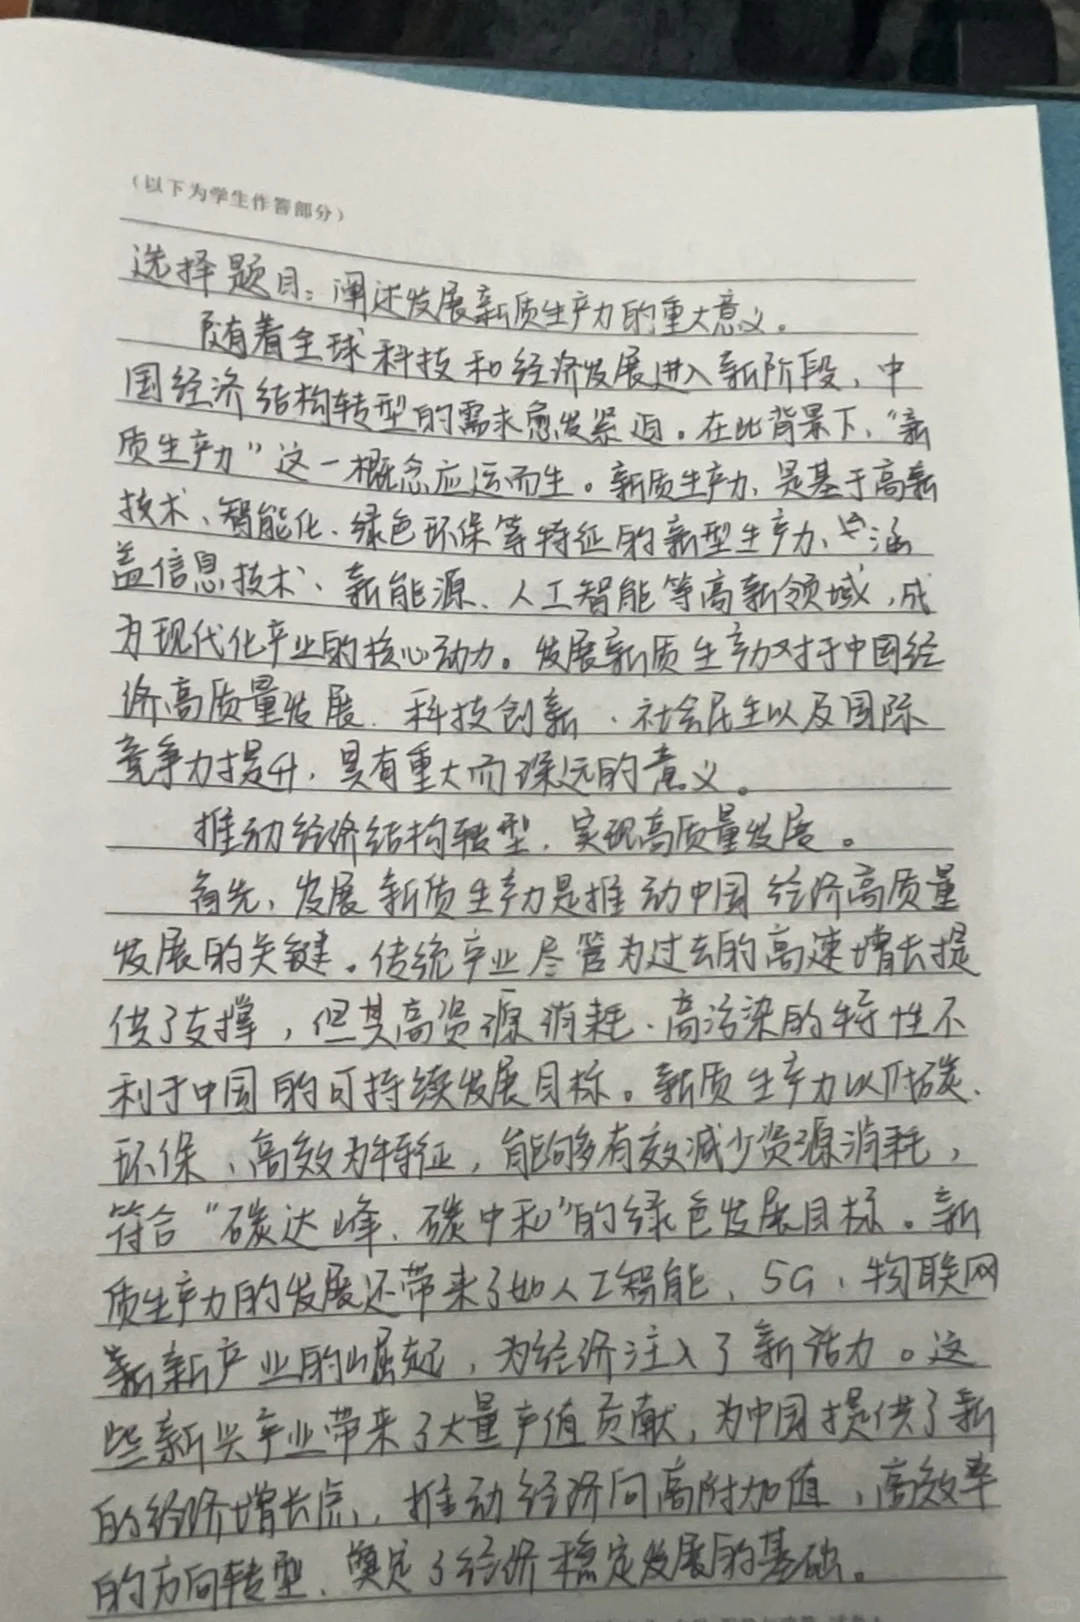 （以下为学生作答部分）
选择题目：阐述发展新质生产力的重大意义。
随着全球科技和经济发展进入新阶段，中
国经济结构转型的需求愈发紧迫。在此背景下，“新
质生产力”这一概念应运而生。新质生产力、是基于高新
技术、智能化、绿色环保等特征的新型生产力、涵
盖信息技术、新能源、人工智能等高新领域，成
为现代化产业的核心动力。发展新质生产力对于中国经
济高质量发展、科技创新、社会民生以及国际
竞争力提升，具有重大而深远的意义。
推动经济结构转型，实现高质量发展。
首先，发展新质生产力是推动中国经济高质量
发展的关键。传统产业尽管为过去的高速增长提
供了支撑，但其高资源消耗、高污染的特性不
利于中国的可持续发展目标。新质生产力以低碳、
环保、高效为特征，能够有效减少资源消耗，
符合“碳达峰、碳中和”的绿色发展目标。新
质生产力的发展还带来了如人工智能、5G、物联网
新产业的崛起，为经济注入了新活力。这
些新兴产业带来了大量产值贡献，为中国提供了新
的经济增长点，推动经济向高附加值，高效率
的方向转型，奠定了经济稳定发展的基础。